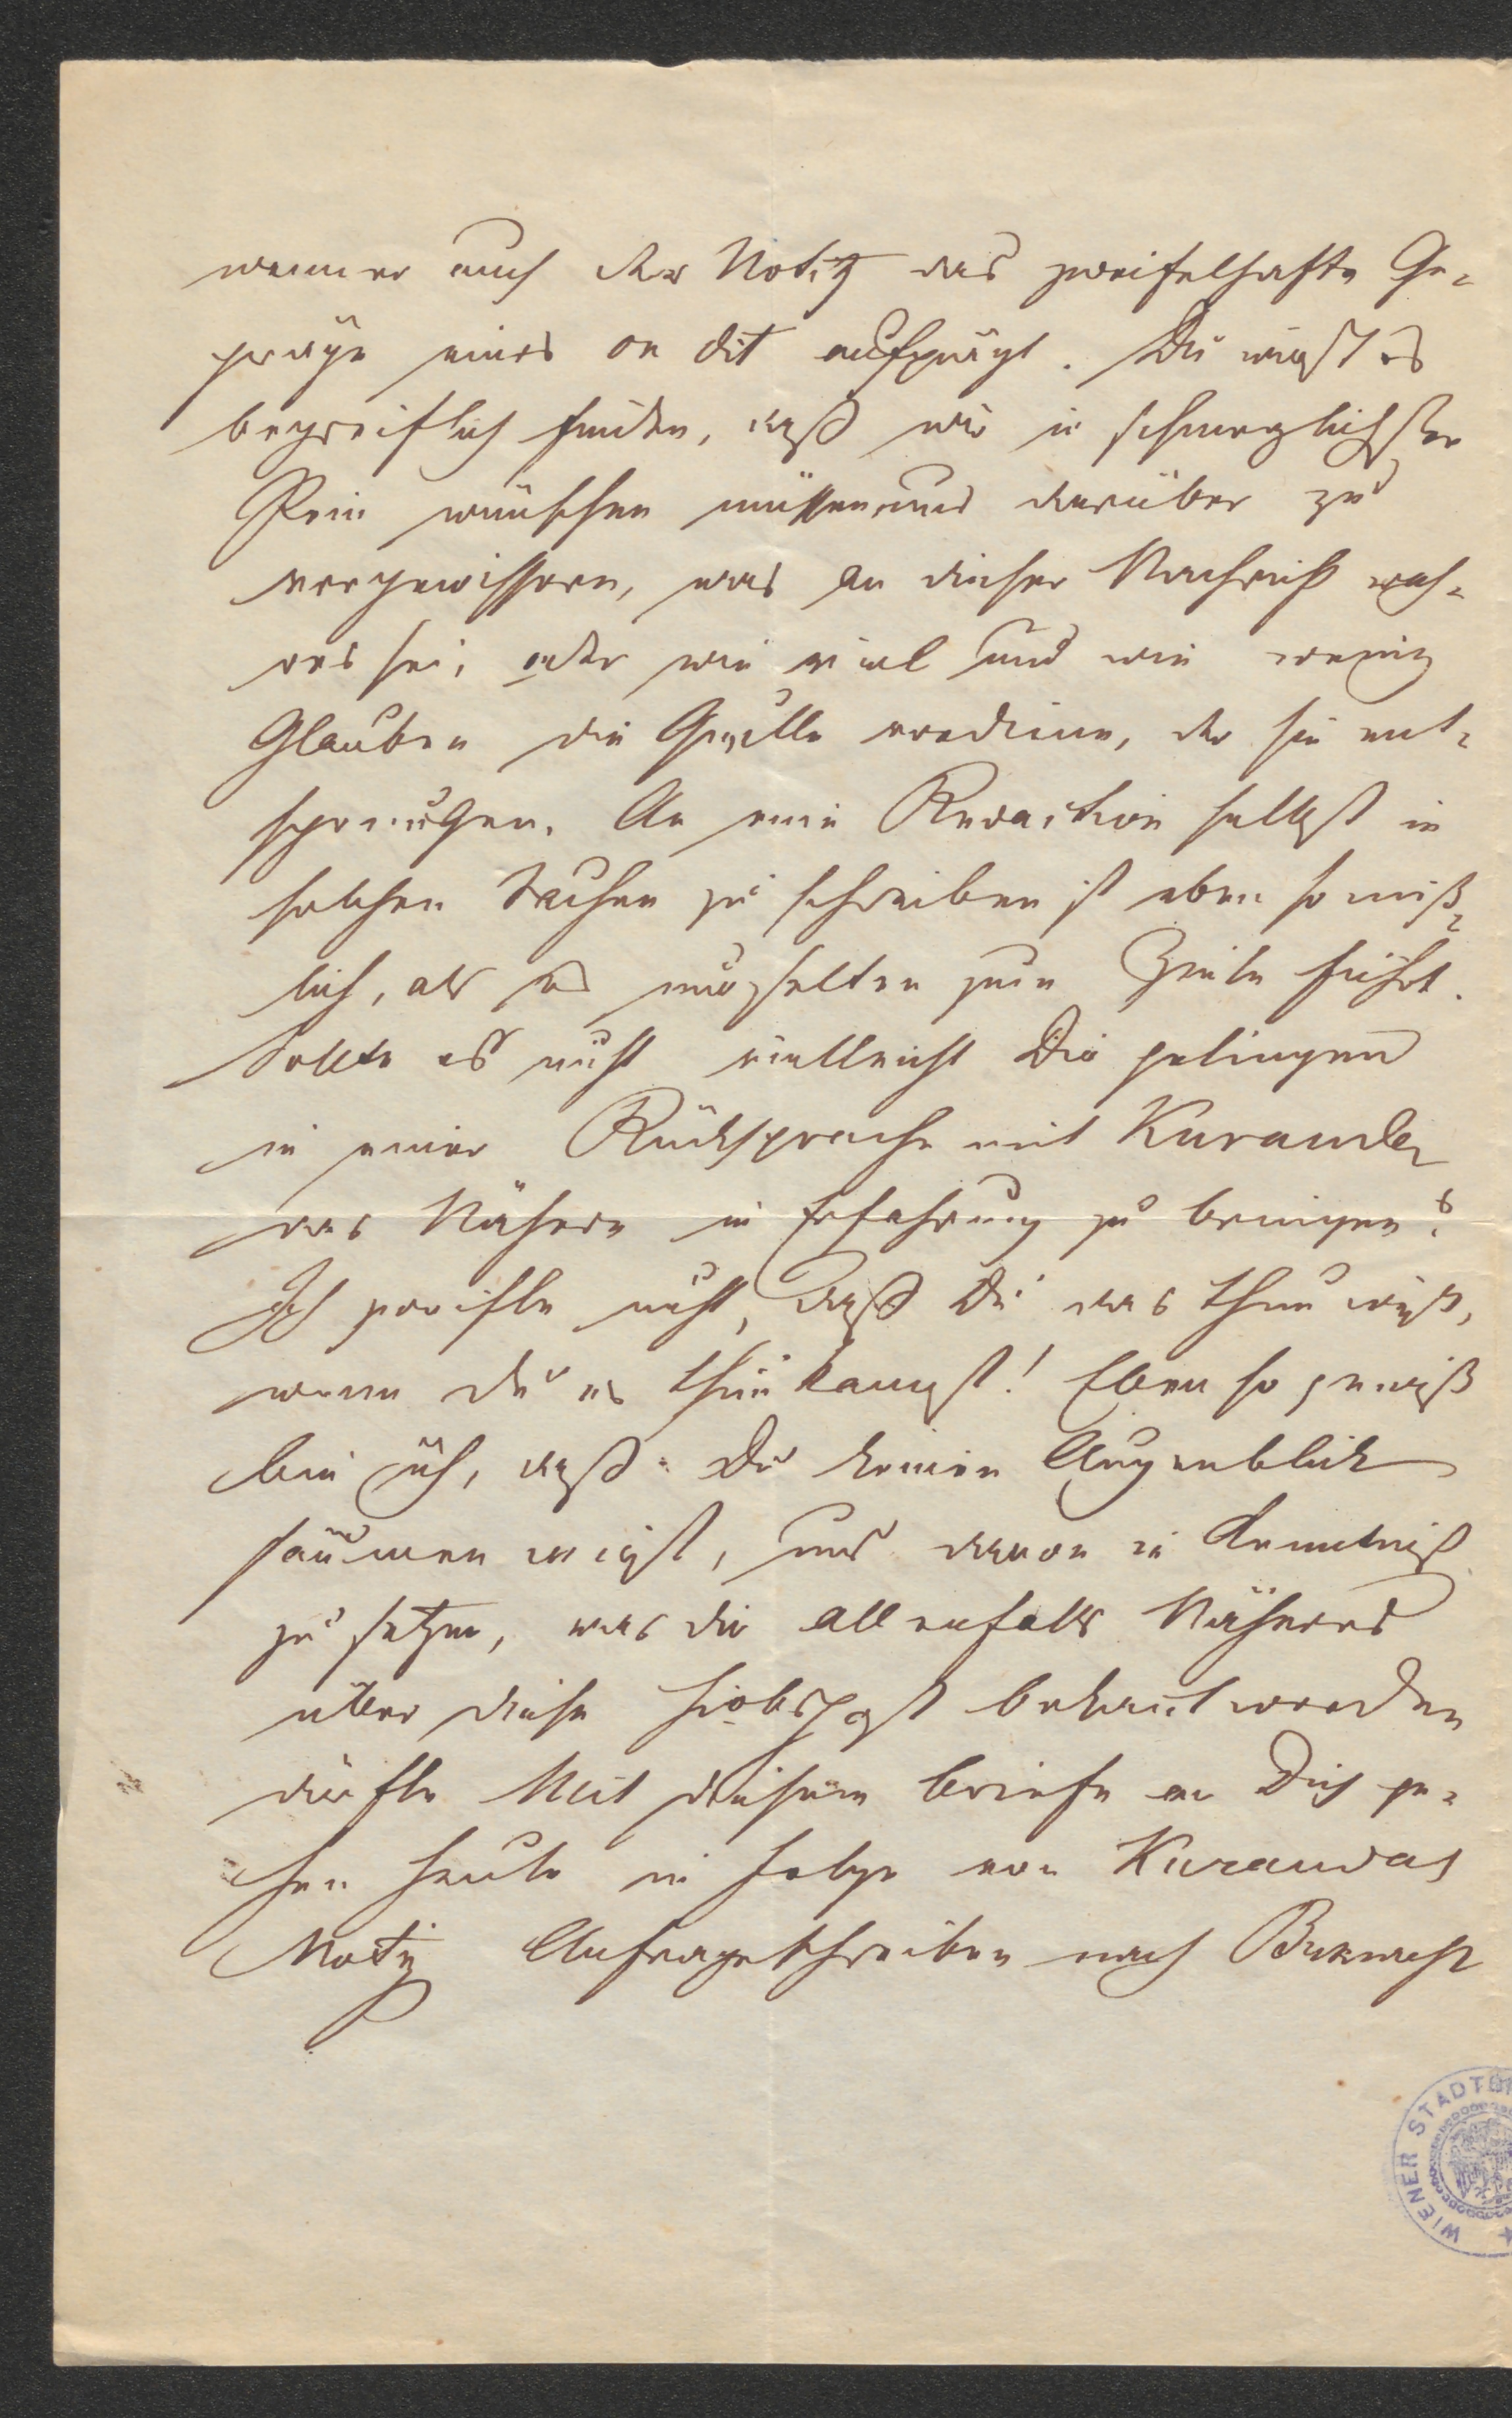 wenn er auch der Notiz das zweifelhafte Ge-
präge eines on dit aufprägt. Du wirst es
begreiflich finden, daß wir in schmerzlichster
Pein wünschen müssen uns darüber zu
vergewissern, was an dieser Nachricht wah-
res sei, oder wie viel und wie wenig
Glauben die Quelle verdiene, der sie ent-
sprungen. An eine Redaction selbst in
solchen Sachen zu schreiben ist eben so miß-
lich, als es nur selten zum Ziele führt.
Sollte es nicht vielleicht Dir gelingen
in einer Rücksprache mit Kuranda
das Nähere in Erfahrung zu bringen?
Ich zweifle nicht, daß Du das thun wirst,
wenn du es thun kannst! Eben so gewiß
bin ich, daß Du keinen Augenblick
säumen wirst, uns davon in Kenntniß
zu setzen, was dir allenfalls Näheres
über diese Hiobspost bekannt werden
dürfte. Mit diesem Briefe an Dich ge-
hen heute in Folge von Kurandas
Notiz Anfrageschreiben nach Bukarest
WIENER STADTBI